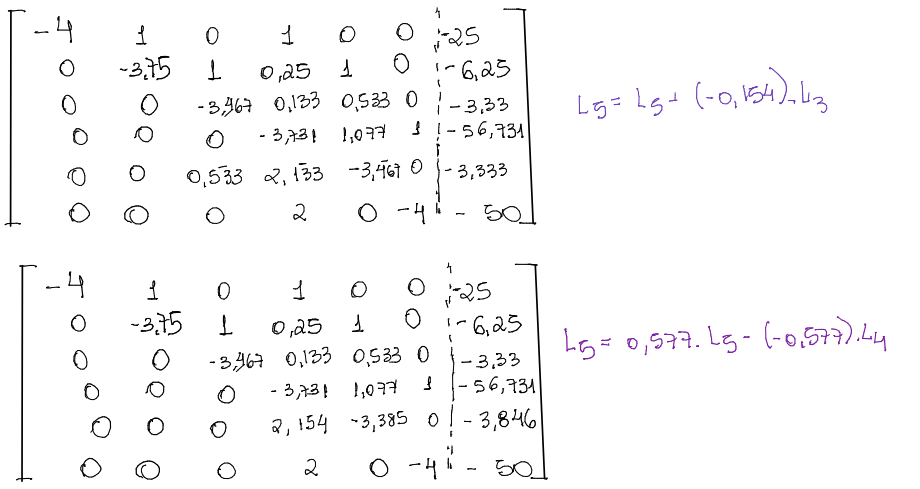 -4 1 0 1 0 0 -25
0 -3,75 1 0,25 1 0 -6,25
0 0 -3,467 0,133 0,533 0 -3.33
0 0 0 -3,731 1,077 1 -56,731
0 0 0,533 2,133 -3,467 0 -3,333
0 0 0 2 0 -4 -50
L5 = L5 + (-0,154).L3
-4 1 0 1 0 0 -25
0 -3,75 1 0,25 1 0 -6,25
0 0 -3,467 0,133 0,533 0 -3.33
0 0 0 -3,731 1,077 1 -56,731
0 0 0 2,154 -3,385 0 -3,846
0 0 0 2 0 -4 -50
L5 = 0,577. L5 - (-0,577).L4